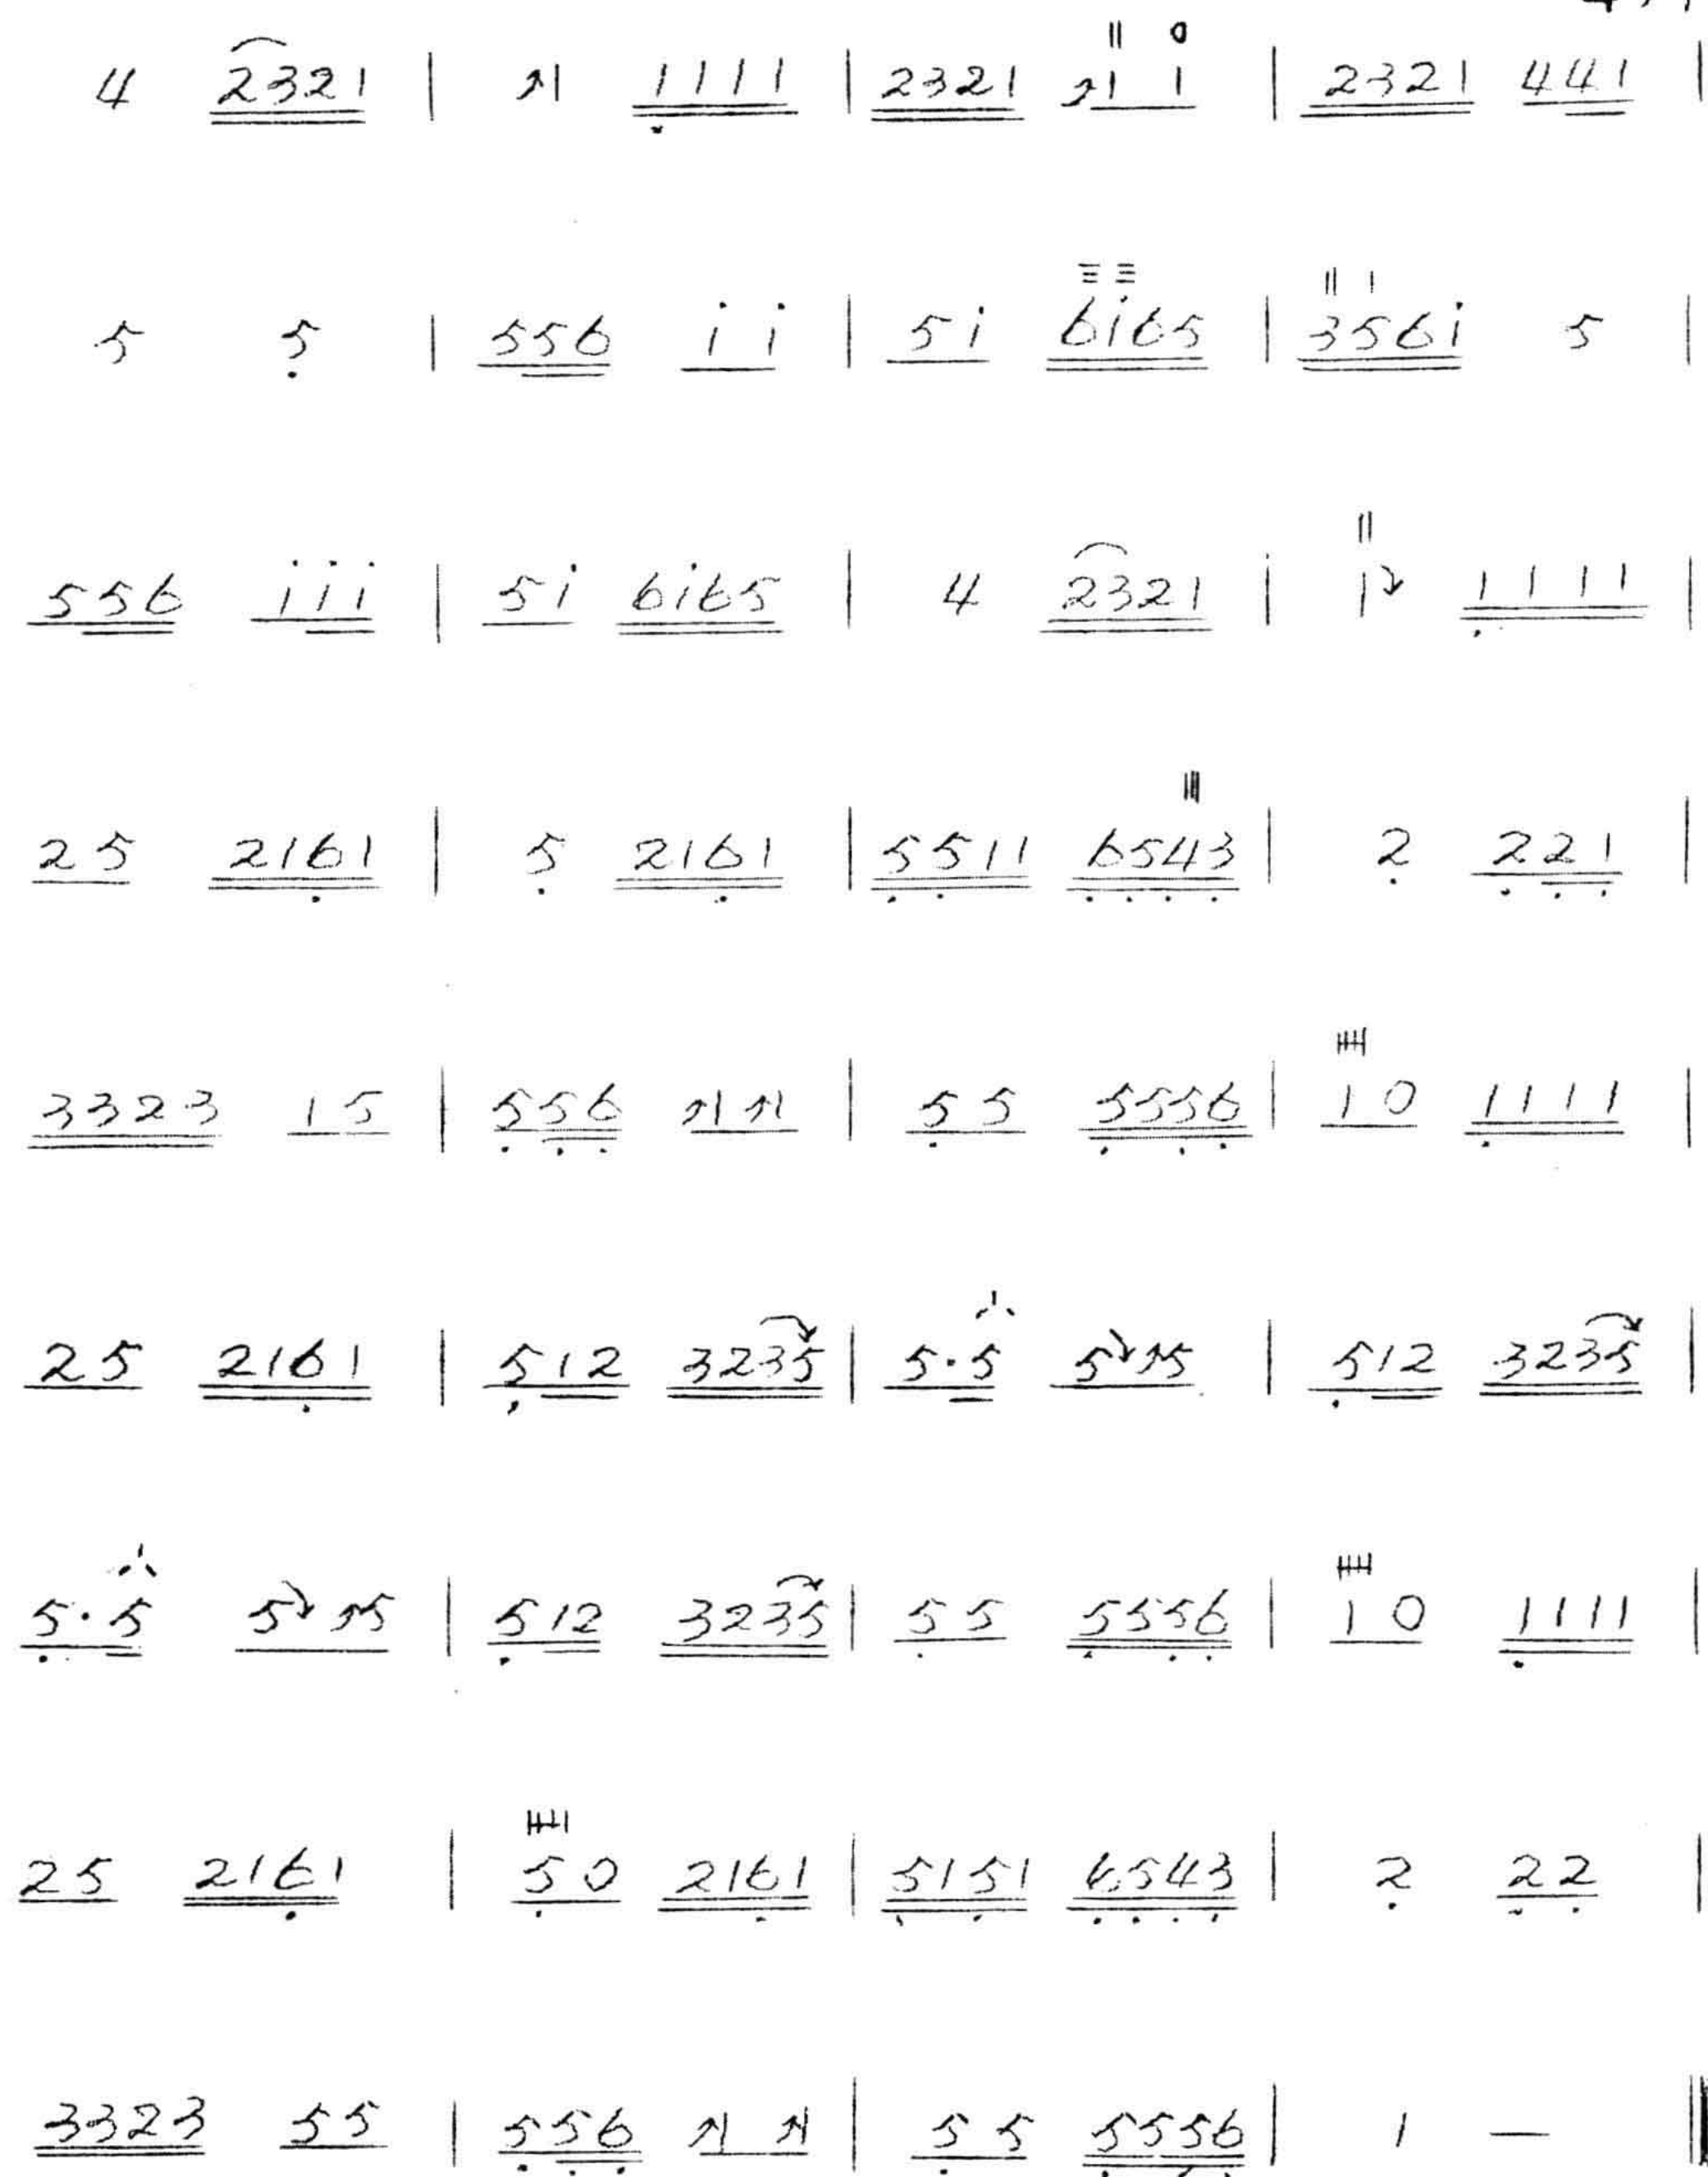 4 2321 | ↗1 1111 | 2321 ↗1 1 | 2321 441 |
5 5̣ | 556 i i | 5i 6i65 | 356i 5 |
556 iii | 5i 6i65 | 4 2321 | 1↘ 1111 |
25 216̣1 | 5̣ 216̣1 | 5̣5̣11 6̣5̣4̣3̣ | 2̣ 2̣2̣1̣ |
3323 15 | 5̣5̣6̣ ↗1↗1 | 5̣5 5̣55̣6̣ | 10 1̣111 |
25 216̣1 | 5̣12 3235 | 5·5 5↘↗5 | 5̣12 3235 |
5̣·5 5↘↗5 | 5̣12 3235 | 5̣5 5̣55̣6̣ | 10 1̣111 |
25 216̣1 | 5̣0 216̣1 | 5̣15̣1 6̣5̣4̣3̣ | 2̣ 2̣2̣ |
3323 55 | 5̣5̣6̣ ↗1 ↗1 | 5̣5 5̣55̣6̣ | 1 — ‖